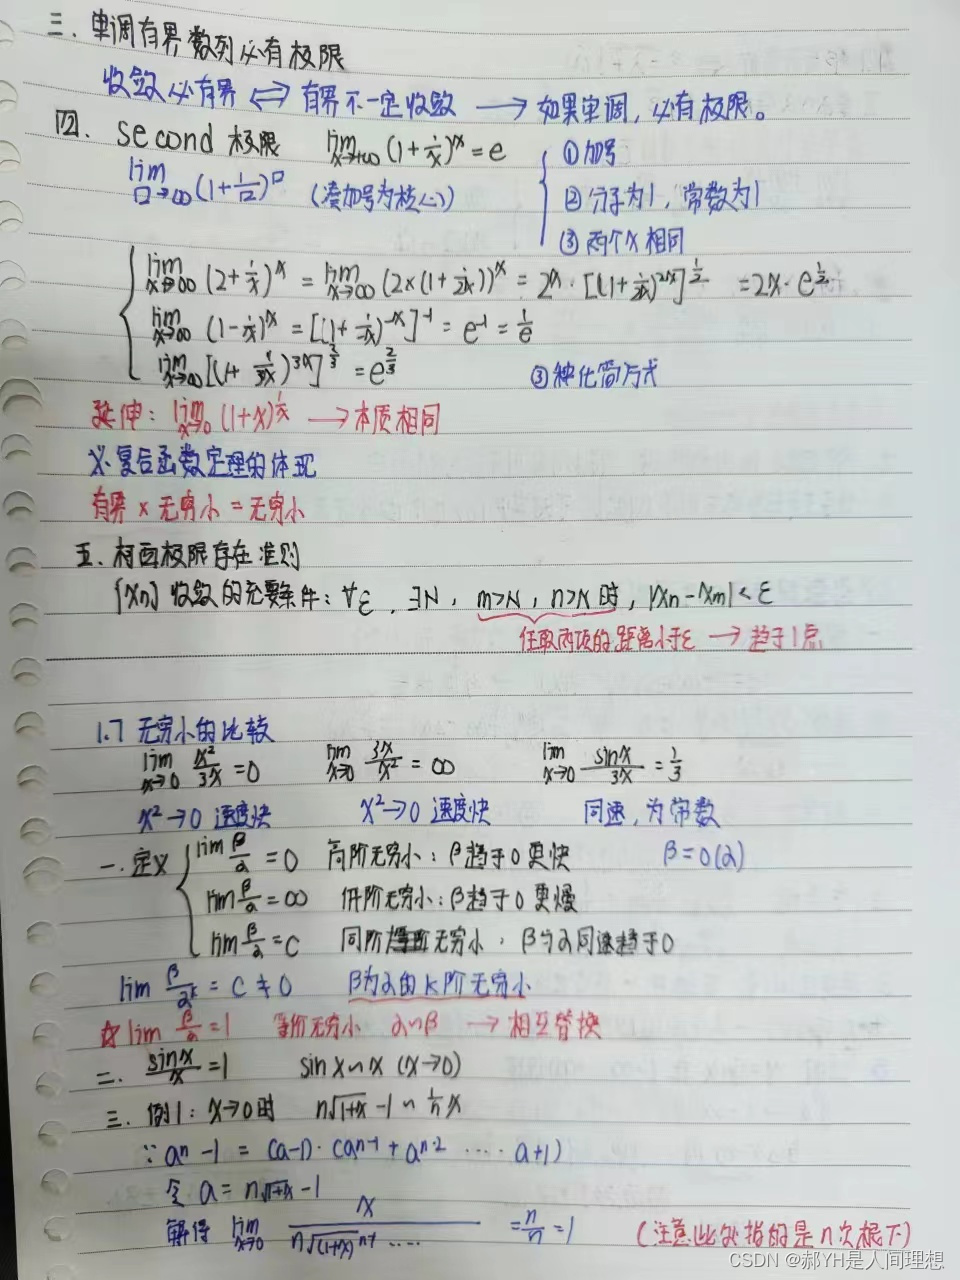 三、单调有界数列必有极限
收敛必有界 ⟺ 有界不一定收敛 → 如果单调,必有极限。
四、second 极限 lim x→+∞ (1+1/x)^x = e ①加号
lim □→∞ (1+1/□)^□ (凑加号为核心) ②分子为1,常数为1
③两个x相同
lim x→∞ (2+1/x)^x = lim x→∞ (2×(1+1/2x))^x = 2x·[(1+1/2x)^2x]^1/2 = 2x·e^1/2
lim x→∞ (1-1/x)^x = [(1+1/-x)^-x]^-1 = e^-1 = 1/e
lim x→∞ [(1+1/3x)^3x]^2/3 = e^2/3 ③种化简方式
延伸: lim x→0 (1+x)^1/x → 本质相同
※复合函数定理的体现
有界 × 无穷小 = 无穷小
五、柯西极限存在准则
{Xn} 收敛的充要条件: ∀ε, ∃N, m>N, n>N时, |Xn-Xm|<ε
任取两项的距离小于ε → 趋于1点
1.7 无穷小的比较
lim x→0 x²/3x = 0 lim x→0 3x/x² = ∞ lim x→0 sinx/3x = 1/3
x²→0 速度快 x²→0 速度快 同速,为常数
一.定义 lim β/α = 0 高阶无穷小: β趋于0更快 β=o(α)
lim β/α = ∞ 低阶无穷小: β趋于0更慢
lim β/α = C 同阶无穷小, β为α同速趋于0
lim β/α^k = C ≠ 0 β为α的k阶无穷小
☆lim β/α = 1 等价无穷小 α∽β → 相互替换
二. sinx/x = 1 sinx∽x (x→0)
三. 例1: x→0时 n√1+x -1 ∽ 1/n x
∵ a^n -1 = (a-1)·(a^n-1 + a^n-2 ···· a+1)
令 a = n√1+x -1
解得 lim x→0 x / n√(1+x)^n-1 ····· = n/n = 1 (注意此处指的是n次根下)
CSDN @郝YH是人间理想